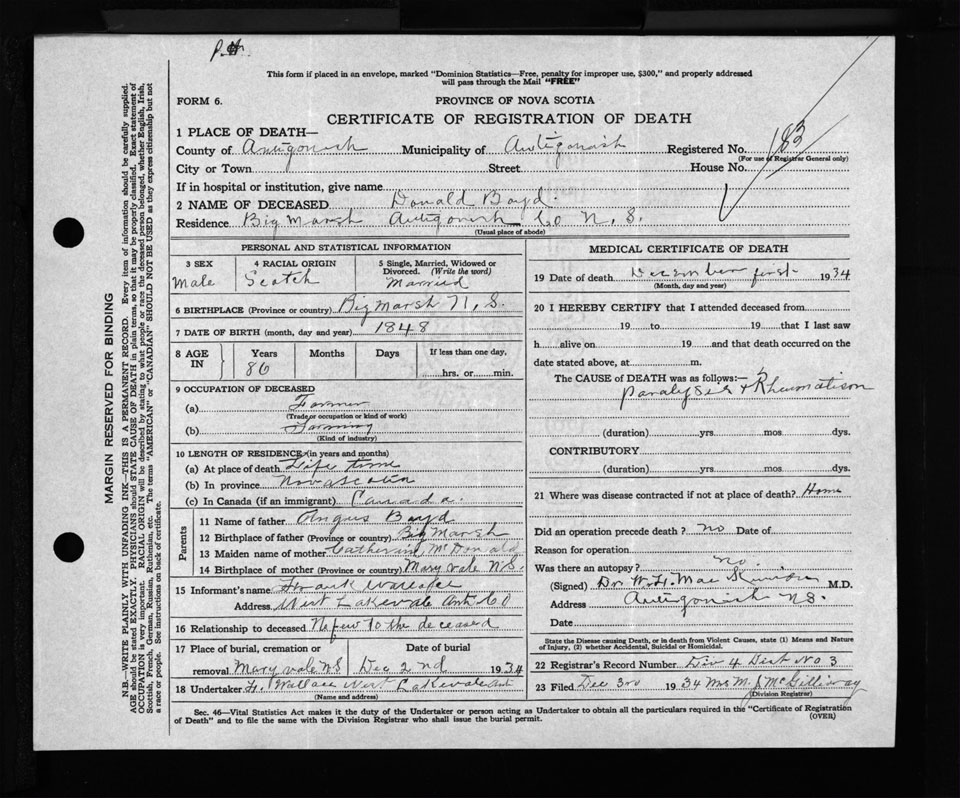 This form if placed in an envelope, marked "Dominion Statistics—Free, penalty for improper use, $300," and properly addressed
will pass through the Mail "FREE"
FORM 6. PROVINCE OF NOVA SCOTIA
CERTIFICATE OF REGISTRATION OF DEATH
1 PLACE OF DEATH—
County of Antigonish Municipality of Antigonish Registered No. 183
(For use of Registrar General only)
City or Town Street House No.
If in hospital or institution, give name
2 NAME OF DECEASED Donald Boyd
Residence Big Marsh Antigonish Co N. S.
(Usual place of abode)
PERSONAL AND STATISTICAL INFORMATION
3 SEX 4 RACIAL ORIGIN 5 Single, Married, Widowed or Divorced. (Write the word)
Male Scotch Married
6 BIRTHPLACE (Province or country) Big Marsh N. S.
7 DATE OF BIRTH (month, day and year) 1848
8 AGE IN Years Months Days If less than one day,
86 hrs. or min.
9 OCCUPATION OF DECEASED
(a) Farmer
(Trade or occupation or kind of work)
(b) Farming
(Kind of industry)
10 LENGTH OF RESIDENCE (in years and months)
(a) At place of death Life time
(b) In province Nova Scotia
(c) In Canada (if an immigrant) Canada
Parents
11 Name of father Angus Boyd
12 Birthplace of father (Province or country) Big Marsh
13 Maiden name of mother Catherine McDonald
14 Birthplace of mother (Province or country) Mary vale N.S.
15 Informant's name Frank Wallace
Address West Lakevale Ant Co
16 Relationship to deceased Nefew to the deceased
17 Place of burial, cremation or removal Date of burial
Mary vale N S Dec 2nd 1934
18 Undertaker F. Wallace West Lakevale Ant
(Name and address)
MEDICAL CERTIFICATE OF DEATH
19 Date of death December first 1934
(Month, day and year)
20 I HEREBY CERTIFY that I attended deceased from
19 to 19 that I last saw
h alive on 19 and that death occurred on the
date stated above, at m.
The CAUSE OF DEATH was as follows:—
Paralyses & Rheumatism
(duration) yrs. mos. dys.
CONTRIBUTORY
(duration) yrs. mos. dys.
21 Where was disease contracted if not at place of death? Home
Did an operation precede death? no Date of
Reason for operation
Was there an autopsy? no
(Signed) Dr. W. F. Mac Kinnon M.D.
Address Antigonish N.S.
Date
State the Disease causing Death, or in death from Violent Causes, state (1) Means and Nature
of Injury, (2) whether Accidental, Suicidal or Homicidal.
22 Registrar's Record Number Div 4 Dest No 3
23 Filed Dec 3rd 1934 Mrs M. J McGillivray
(Division Registrar)
Sec. 46—Vital Statistics Act makes it the duty of the Undertaker or person acting as Undertaker to obtain all the particulars required in the "Certificate of Registration
of Death" and to file the same with the Division Registrar who shall issue the burial permit. (OVER)
MARGIN RESERVED FOR BINDING
N.B.—WRITE PLAINLY WITH UNFADING INK—THIS IS A PERMANENT RECORD. Every item of information should be carefully supplied.
AGE should be stated EXACTLY. PHYSICIANS should STATE CAUSE OF DEATH in plain terms, so that it may be properly classified. Exact statement of
OCCUPATION is very important. RACIAL ORIGIN will be described by stating to what people or race the deceased person belonged, whether English, Irish,
Scottish, French, German, Russian, Ruthenian, etc. The terms "AMERICAN" or "CANADIAN" SHOULD NOT BE USED as they express citizenship but not
a race or people. See instructions on back of certificate.